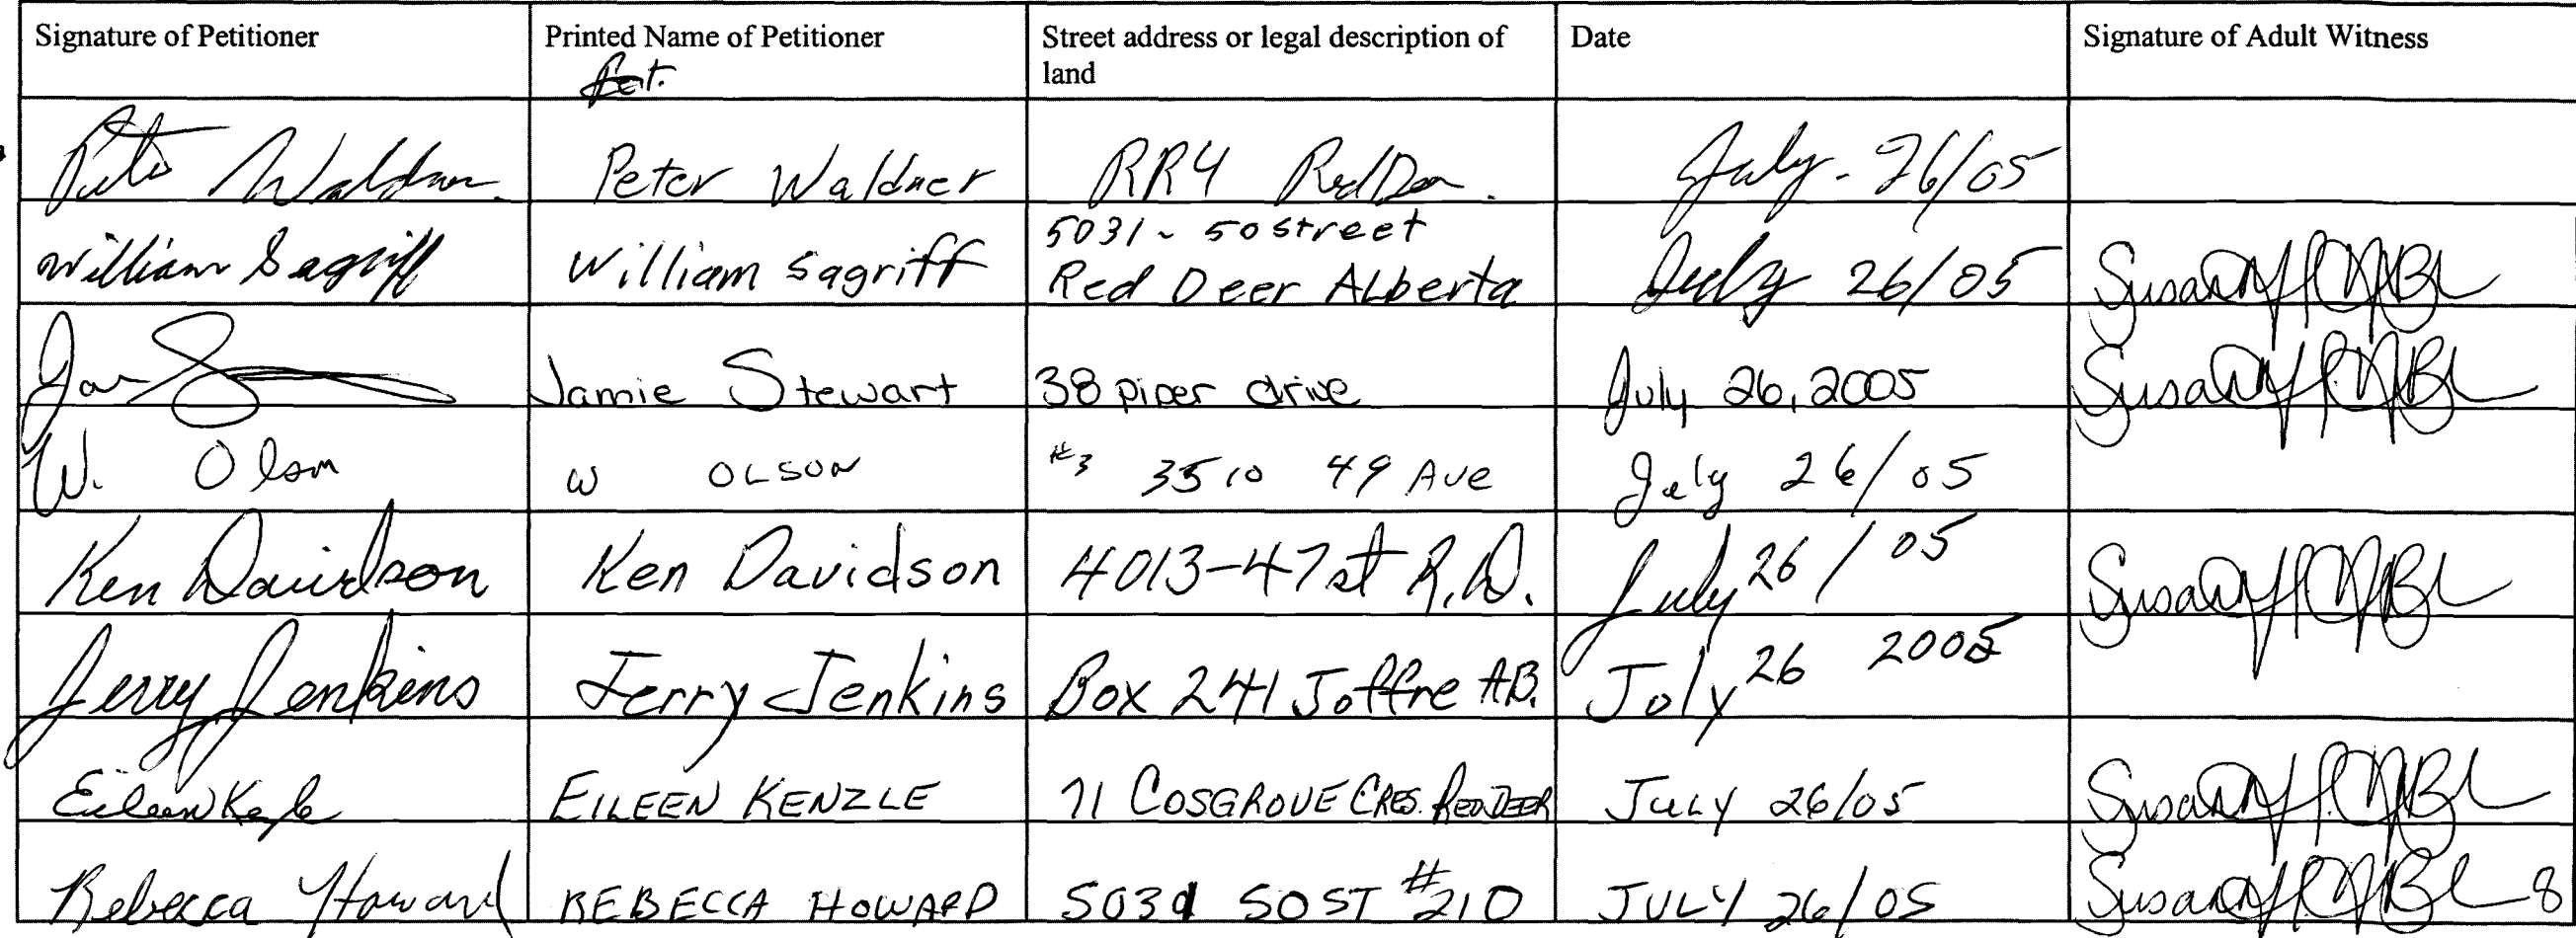 Signature of Petitioner Printed Name of Petitioner Street address or legal description of Date Signature of Adult Witness
land
Waldner Peter Waldner RR4 Red Deer. July. 26/05
5031 - 50 street
William Sagriff William Sagriff Red Deer ALberta July 26/05 Susan
Jamie Stewart 38 piper drive July 26, 2005 Susan
W. Olson W OLSON #3 3510 49 Ave July 26/05
Ken Davidson Ken Davidson 4013-47 st R.D. July 26/05 Susan
Jerry Jenkins Jerry Jenkins Box 241 Joffre AB. July 26 2005
Eileen EILEEN KENZLE 71 COSGROVE CRES. RED DEER JULY 26/05 Susan
Rebecca Howard REBECCA HOWARD 5031 50 ST #210 JULY 26/05 Susan 8